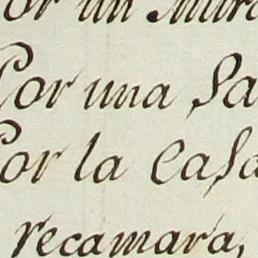 or un Mur
Por una Sa
Por la Casa
recamara,